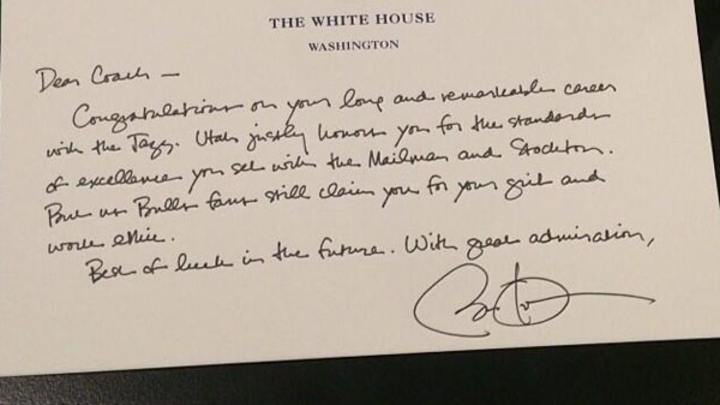 THE WHITE HOUSE
WASHINGTON
Dear Coach —
Congratulations on your long and remarkable career
with the Jazz. Utah justly honors you for the standards
of excellence you set with the Mailman and Stockton.
But us Bulls fans still claim you for your grit and
work ethic.
Best of luck in the future. With great admiration,